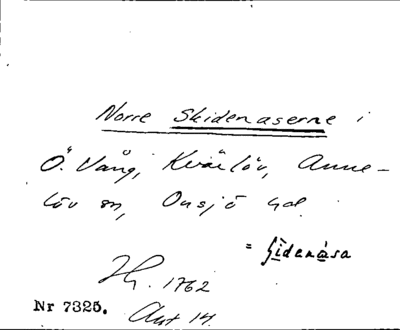 Norre Skidenaserne i
Ö. Vång, Kvärlöv, Anne-
löv sn, Onsjö hd.
= Sidenåsa
Hg. 1762
Nr 7325. Akt 14.